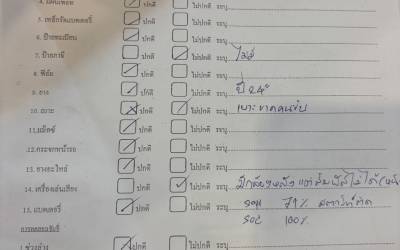 ปกติ ไม่ปกติ ระบุ
5. เหล็กรัดแบตเตอรี่ ปกติ ไม่ปกติ ระบุ
6. ป้ายทะเบียน ปกติ ไม่ปกติ ระบุ
7. ป้ายภาษี ปกติ ไม่ปกติ ระบุ ไม่มี
8. ฟิล์ม ปกติ ไม่ปกติ ระบุ
9. ยาง ปกติ ไม่ปกติ ระบุ ปี 24
10. เบาะ ปกติ ไม่ปกติ ระบุ เบาะขาดคนขับ
11. แม็กซ์ ปกติ ไม่ปกติ ระบุ
12. กระจกหน้ารถ ปกติ ไม่ปกติ ระบุ
13. ยางอะไหล่ ปกติ ไม่ปกติ ระบุ
14. เครื่องเล่นเสียง ปกติ ไม่ปกติ ระบุ
15. แบตเตอรี่ ปกติ ไม่ปกติ ระบุ SOH 79% สตาร์ทติด
SOC 100%
ปกติ ไม่ปกติ ระบุ